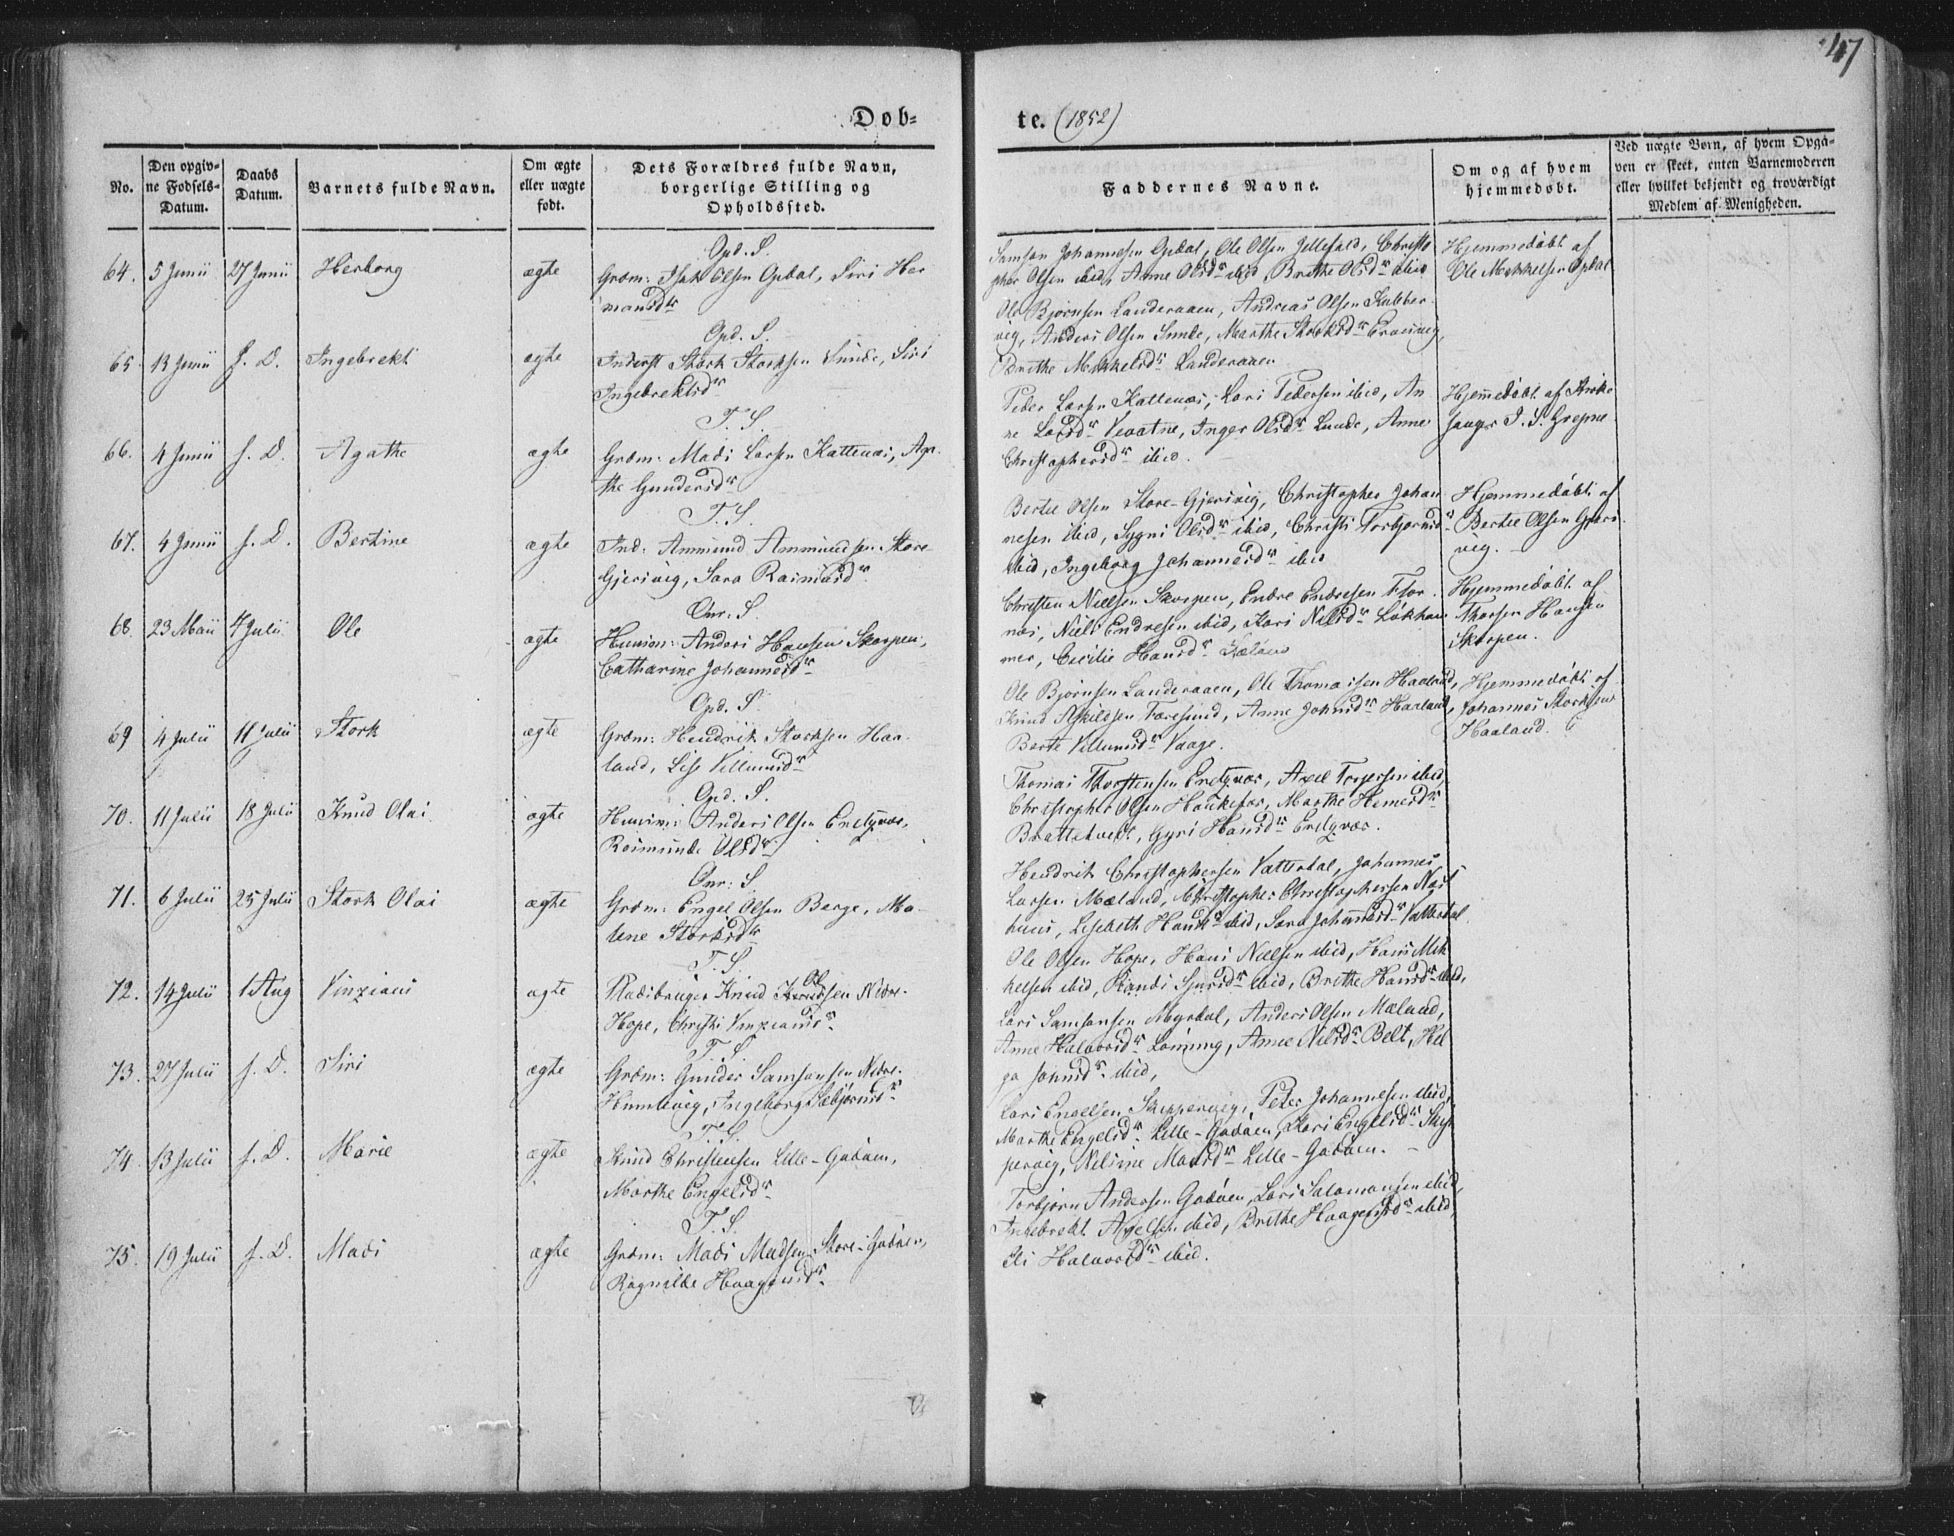 47
Döb-
te. (1852)
No.
Den opgiv-
ne Födsels-
Datum.
Daabs
Datum.
Barnets fulde Navn.
Om ægte
eller uægte
födt.
Dets Forældres fulde Navn,
borgerlige Stilling og
Opholdssted.
Faddernes Navne.
Om og af hvem
hjemmedöbt.
Ved uægte Börn, af hvem Opga-
ven er skeet, enten Barnemoderen
eller hvilket bekjendt og troværdigt
Medlem af Menigheden.
64. 5 Junii 27 Junii Herborg ægte
Opd. S.
Grdm: Isak Olsen Opdal, Siri Her
mansdr
Samson Johannesen Opdal, Ole Olsen, Christo
pher Olsen ibid, Anne Olsdr ibid Brithe Olsdr ibid
Hjemmedöbt af
Ole Mikkelsen Opdal
65. 13 Junii s. D. Ingebrekt ægte
Opd. S.
Inderst Stork Storksen Sunde, Siri
Ingebrektsdr
Ole Bjornsen Landeraaen, Andreas Olsen Kubber
vig, Anders Olsen Sunde, Marthe Storksdr
Brithe Mikkelsdr Landeraaen
66. 4 Junii s. D. Agathe ægte
T. S.
Grdm: Mads Larsen Kattenæs, Aga
the Gundersdr
Peder Larsen Kattenæs, Lars Pedersen ibid, An
ne Larsdr Vevatne, Inger Olsdr Lunde, Anne
Christophersdr ibid.
Hjemmedöbt af Kirke
sanger I. S. Grepne
67. 4 Junii s. D. Bertine ægte
T. S.
Ind: Ammund Ammundsen Store-
Gjersvig, Sara Rasmusdr
Bertel Olsen Store-Gjersvig, Christopher Johan
nesen ibid, Sygni Olsdr ibid, Christi Torbjornsdr
ibid, Ingeborg Johannesdr ibid
Hjemmedöbt af
Bertel Olsen Gjers
vig.
68. 23 Maii 4 Julii Ole ægte
Onr: S.
Husm: Anders Hansen Skorpen,
Catharine Johannesdr
Christen Nielsen Skorpen, Endre Endresen Flor
næs, Niels Endresen ibid, Kari Nilsdr Lökham
mer, Cecilie Hansdr
Hjemmedöbt af
Hansen
Skorpen.
69 4 Julii 11 Julii Stork ægte
Opd. S.
Grdm: Hendrik Storksen Haa-
land, Lise Villumsdr
Ole Bjornsen Landeraaen, Ole Thomassen Haaland,
Knud Askildsen Færesund, Anne Johnsdr Haaland,
Berte Villumsdr Vaage.
Hjemmedöbt af
Johannes Storksen
Haaland.
70. 11 Julii 18 Julii Knud Olai ægte
Opd. S.
Husm: Anders Olsen Engevær,
Rasmunde Olsdr
Thomas Thostensen, Axel Torgersen ibid,
Christopher Olsen, Marthe Hemersdr
Brattetveit, Gyri Hansdr
71. 6 Julii 25 Julii Stork Olai ægte
Onr: S
Grdm: Engel Olsen Berge, Ma-
lene Storksdr
Hendrik Christophersen Vattedal, Johannes
Larsen Mæland, Christopher Christophersen Nær
huus, Lisebeth Hansdr ibid, Sara Johannesdr Vattedal
72. 14 Julii 1 Aug Vinzians ægte
T. S.
Pladsbruger Knud Olsen Nedre-
Hope, Christi Vinziansdr
Ole Olsen Hope, Hans Nielsen ibid, Hans Mik
kelsen ibid, Randi Sjursdr ibid, Brithe Hansdr ibid,
73. 27 Julii s. D. Siri ægte
T. S.
Grdm: Gunder Samsonsen Nedre-
Humlevig, Ingeborg Sæbjörnsdr
Lars Samsonsen Myrdal, Anders Olsen Mæland,
Anne Halvorsdr Lönning, Anne Nilsdr Belt, Hel
ga Johnsdr ibid,
74 13 Julii s. D. Marie ægte
T. S.
Knud Christensen Lille-Godöen,
Marthe Engelsdr
Lars Engelsen Skippervig, Peter Johannesen ibid,
Marthe Engelsdr Lille-Godöen, Kari Engelsdr Skip
pervig, Nilsine Madsdr Lille-Godöen.
75. 19 Julii s. D. Mads ægte
T. S.
Grdm: Mads Madsen Store-Godöen,
Ragnilde Haagensdr
Torbjörn Andersen Godöen, Lars Salomonsen ibid,
Ingebrekt Axelsen ibid, Brithe Haagensdr ibid,
Eli Halvorsdr ibid.